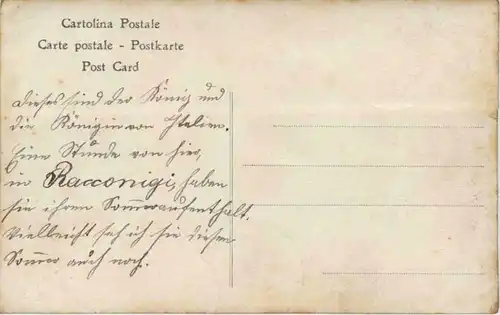 Cartolina Postale
Carte postale - Postkarte
Post Card
Dieses sind der König und
die Königin von Italien.
Eine Stunde von hier,
in Racconigi, haben
sie ihren Sommeraufenthalt.
Vielleicht seh ich sie diesen
Sommer auch noch.